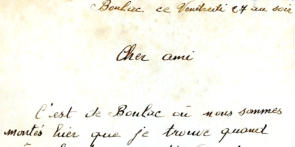 Boulac ce Vendredi 27 au soir
Cher ami
C'est de Boulac où nous sommes
montés hier que je trouve quand